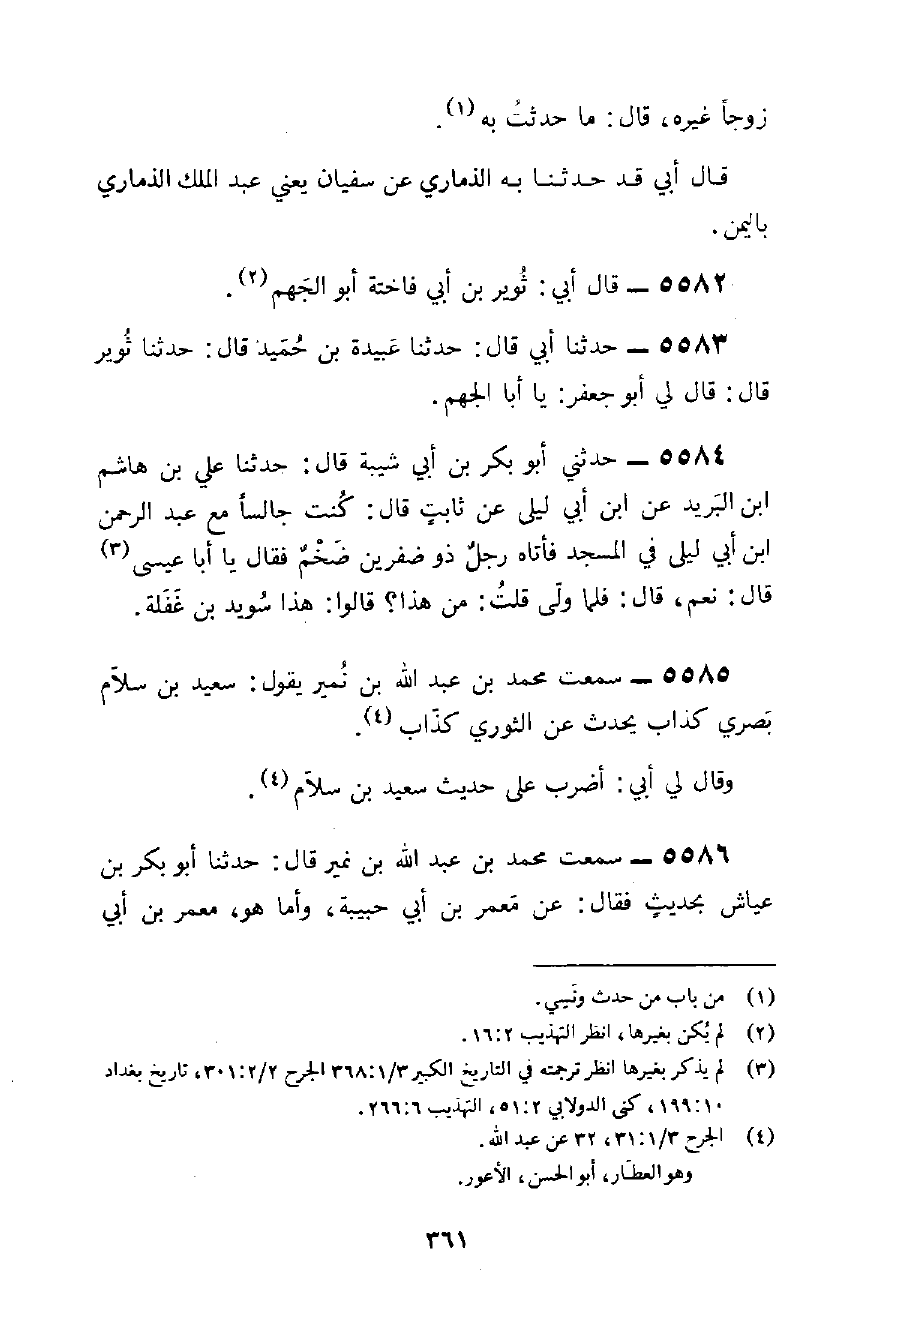 زوجاً غيره، قال: ما حدثتُ به(١).
قال أبي قد حدثنا به الذماري عن سفيان يعني عبد الملك الذماري
باليمن.
٥٥٨٢ — قال أبي: ثُوير بن أبي فاختة أبو الجَهم(٢).
٥٥٨٣ — حدثنا أبي قال: حدثنا عَبيدة بن حُمَيد قال: حدثنا ثُوير
قال: قال لي أبو جعفر: يا أبا الجهم.
٥٥٨٤ — حدثني أبو بكر بن أبي شيبة قال: حدثنا علي بن هاشم
ابن البَريد عن ابن أبي ليلى عن ثابتٍ قال: كُنت جالساً مع عبد الرحمن
ابن أبي ليلى في المسجد فأتاه رجلٌ ذو ضفرين ضَخْمٌ فقال يا أبا عيسى(٣)
قال: نعم، قال: فلما ولّى قلتُ: من هذا؟ قالوا: هذا سُويد بن غَفَلة.
٥٥٨٥ — سمعت محمد بن عبد الله بن نُمير يقول: سعيد بن سلاّم
بَصري كذاب يحدث عن الثوري كذّاب(٤).
وقال لي أبي: أضرب على حديث سعيد بن سلاّم(٤).
٥٥٨٦ — سمعت محمد بن عبد الله بن نمير قال: حدثنا أبو بكر بن
عياش بحديثٍ فقال: عن مَعمر بن أبي حبيبة، وأما هو، معمر بن أبي
(١) من باب من حدث ونَسِي.
(٢) لم يُكن بغيرها، انظر التهذيب ١٦:٢.
(٣) لم يذكر بغيرها انظر ترجمته في التاريخ الكبير ٣٦٨:١/٣ الجرح ٣٠١:٢/٢، تاريخ بغداد
١٩٩:١٠، كنى الدولابي ٥١:٢، التهذيب ٢٦٦:٦.
(٤) الجرح ٣١:١/٣، ٣٢ عن عبد الله.
وهو العطّار، أبو الحسن، الأعور.
٣٦١